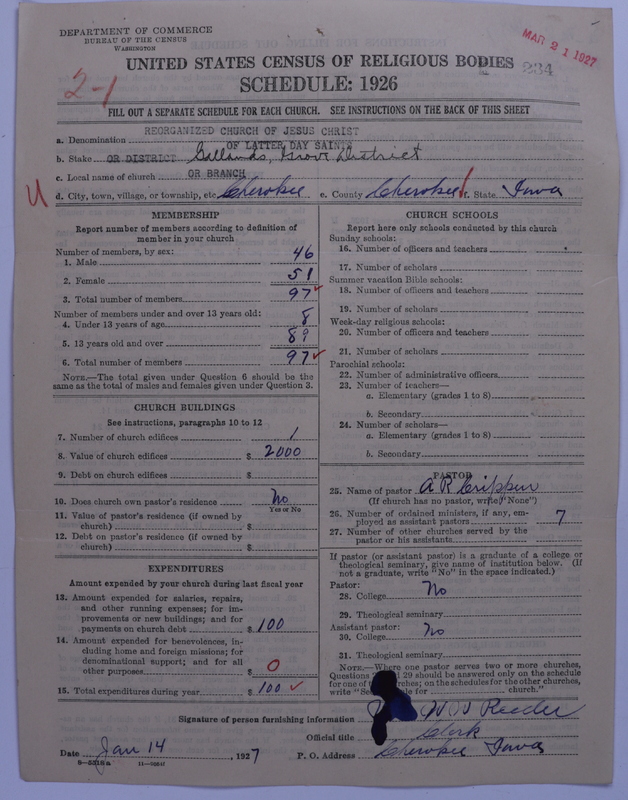 DEPARTMENT OF COMMERCE
BUREAU OF THE CENSUS
WASHINGTON
MAR 21 1927
UNITED STATES CENSUS OF RELIGIOUS BODIES
234
SCHEDULE: 1926
2-1
FILL OUT A SEPARATE SCHEDULE FOR EACH CHURCH. SEE INSTRUCTIONS ON THE BACK OF THIS SHEET
a. Denomination REORGANIZED CHURCH OF JESUS CHRIST
OF LATTER DAY SAINTS
b. Stake OR DISTRICT Gallands, Grove District
c. Local name of church OR BRANCH
U
d. City, town, village, or township, etc. Cherokee e. County Cherokee f. State Iowa
MEMBERSHIP
Report number of members according to definition of
member in your church
Number of members, by sex:
1. Male 46
2. Female 51
3. Total number of members 97
Number of members under and over 13 years old:
4. Under 13 years of age 8
5. 13 years old and over 89
6. Total number of members 97
NOTE.—The total given under Question 6 should be the
same as the total of males and females given under Question 3.
CHURCH BUILDINGS
See instructions, paragraphs 10 to 12
7. Number of church edifices 1
8. Value of church edifices $ 2000
9. Debt on church edifices $
10. Does church own pastor's residence No
Yes or No
11. Value of pastor's residence (if owned by
church) $
12. Debt on pastor's residence (if owned by
church) $
EXPENDITURES
Amount expended by your church during last fiscal year
13. Amount expended for salaries, repairs,
and other running expenses; for im-
provements or new buildings; and for
payments on church debt $ 100
14. Amount expended for benevolences, in-
cluding home and foreign missions; for
denominational support; and for all
other purposes $ 0
15. Total expenditures during year $ 100
CHURCH SCHOOLS
Report here only schools conducted by this church
Sunday schools:
16. Number of officers and teachers
17. Number of scholars
Summer vacation Bible schools:
18. Number of officers and teachers
19. Number of scholars
Week-day religious schools:
20. Number of officers and teachers
21. Number of scholars
Parochial schools:
22. Number of administrative officers
23. Number of teachers—
a. Elementary (grades 1 to 8)
b. Secondary
24. Number of scholars—
a. Elementary (grades 1 to 8)
b. Secondary
PASTOR
25. Name of pastor A R Crippen
(If church has no pastor, write "None")
26. Number of ordained ministers, if any, em-
ployed as assistant pastors 7
27. Number of other churches served by the
pastor or his assistants
If pastor (or assistant pastor) is a graduate of a college or
theological seminary, give name of institution below. (If
not a graduate, write "No" in the space indicated.)
Pastor:
28. College No
29. Theological seminary
Assistant pastor:
30. College No
31. Theological seminary
NOTE.—Where one pastor serves two or more churches,
Questions 29 should be answered only on the schedule
for one of churches; on the schedules for the other churches,
write "See for church."
Signature of person furnishing information Reeder
Official title Clerk
Date Jan 14, 1927 P. O. Address Cherokee Iowa
8-5319a